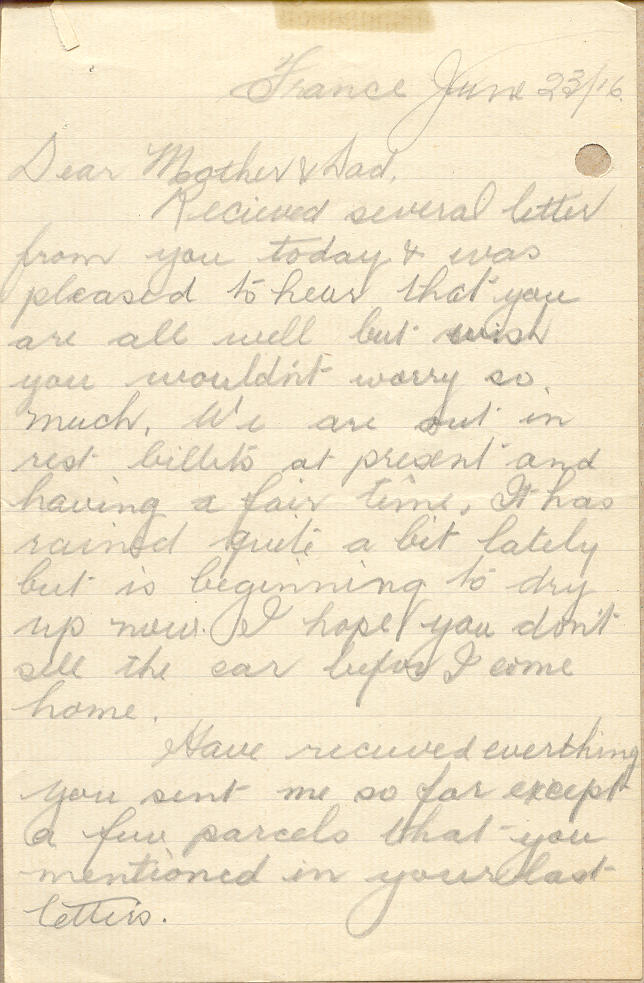 France June 23/16.
Dear Mother & Dad,
Recieved several letter
from you today & was
pleased to hear that you
are all well but wish
you wouldn't worry so
much. We are out in
rest billets at present and
having a fair time. It has
rained quite a bit lately
but is beginning to dry
up now. I hope you don't
sell the car before I come
home.
Have recieved everthing
you sent me so far except
a few parcels that you
mentioned in your last
letters.